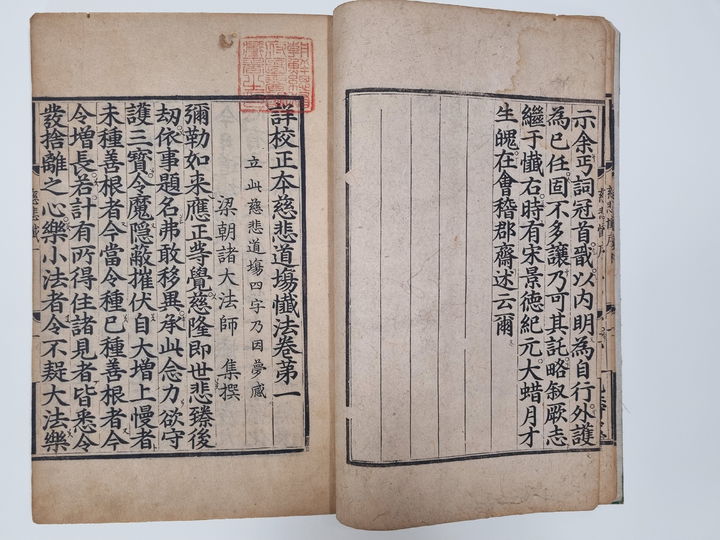 示余丐詞冠首戢以内明為自行外護
為已任固不多讓乃可其託略叙厥志
繼于懺右時有宋景德紀元大蜡月才
生魄在會稽郡齋述云爾
詳校正本慈悲道塲懺法卷第一
立此慈悲道塲四字乃因夢感
梁朝諸大法師 集撰
彌勒如来應正等覺慈隆即世悲臻後
刼依事題名弗敢移異承此念力欲守
護三寶令魔隱蔽摧伏自大增上慢者
未種善根者今當令種已種善根者今
令增長若計有所得住諸見者皆悉令
發捨離之心樂小法者令不疑大法樂
慈悲懺